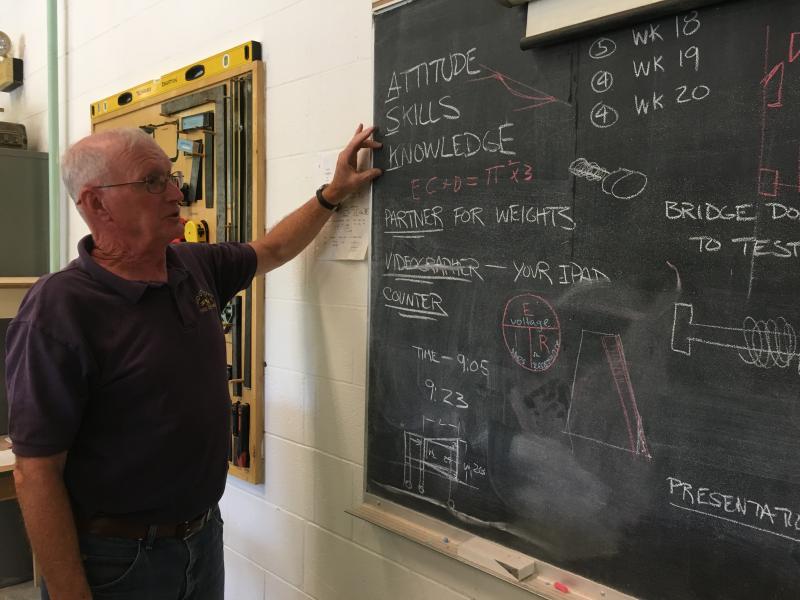 ATTITUDE
SKILLS
KNOWLEDGE
PARTNER FOR WEIGHTS
VIDEOGRAPHER — YOUR IPAD
COUNTER
TIME - 9:05
9:23
E
voltage
I
R
5 WK 18
4 WK 19
4 WK 20
BRIDGE DO
TO TEST
PRESENTATI